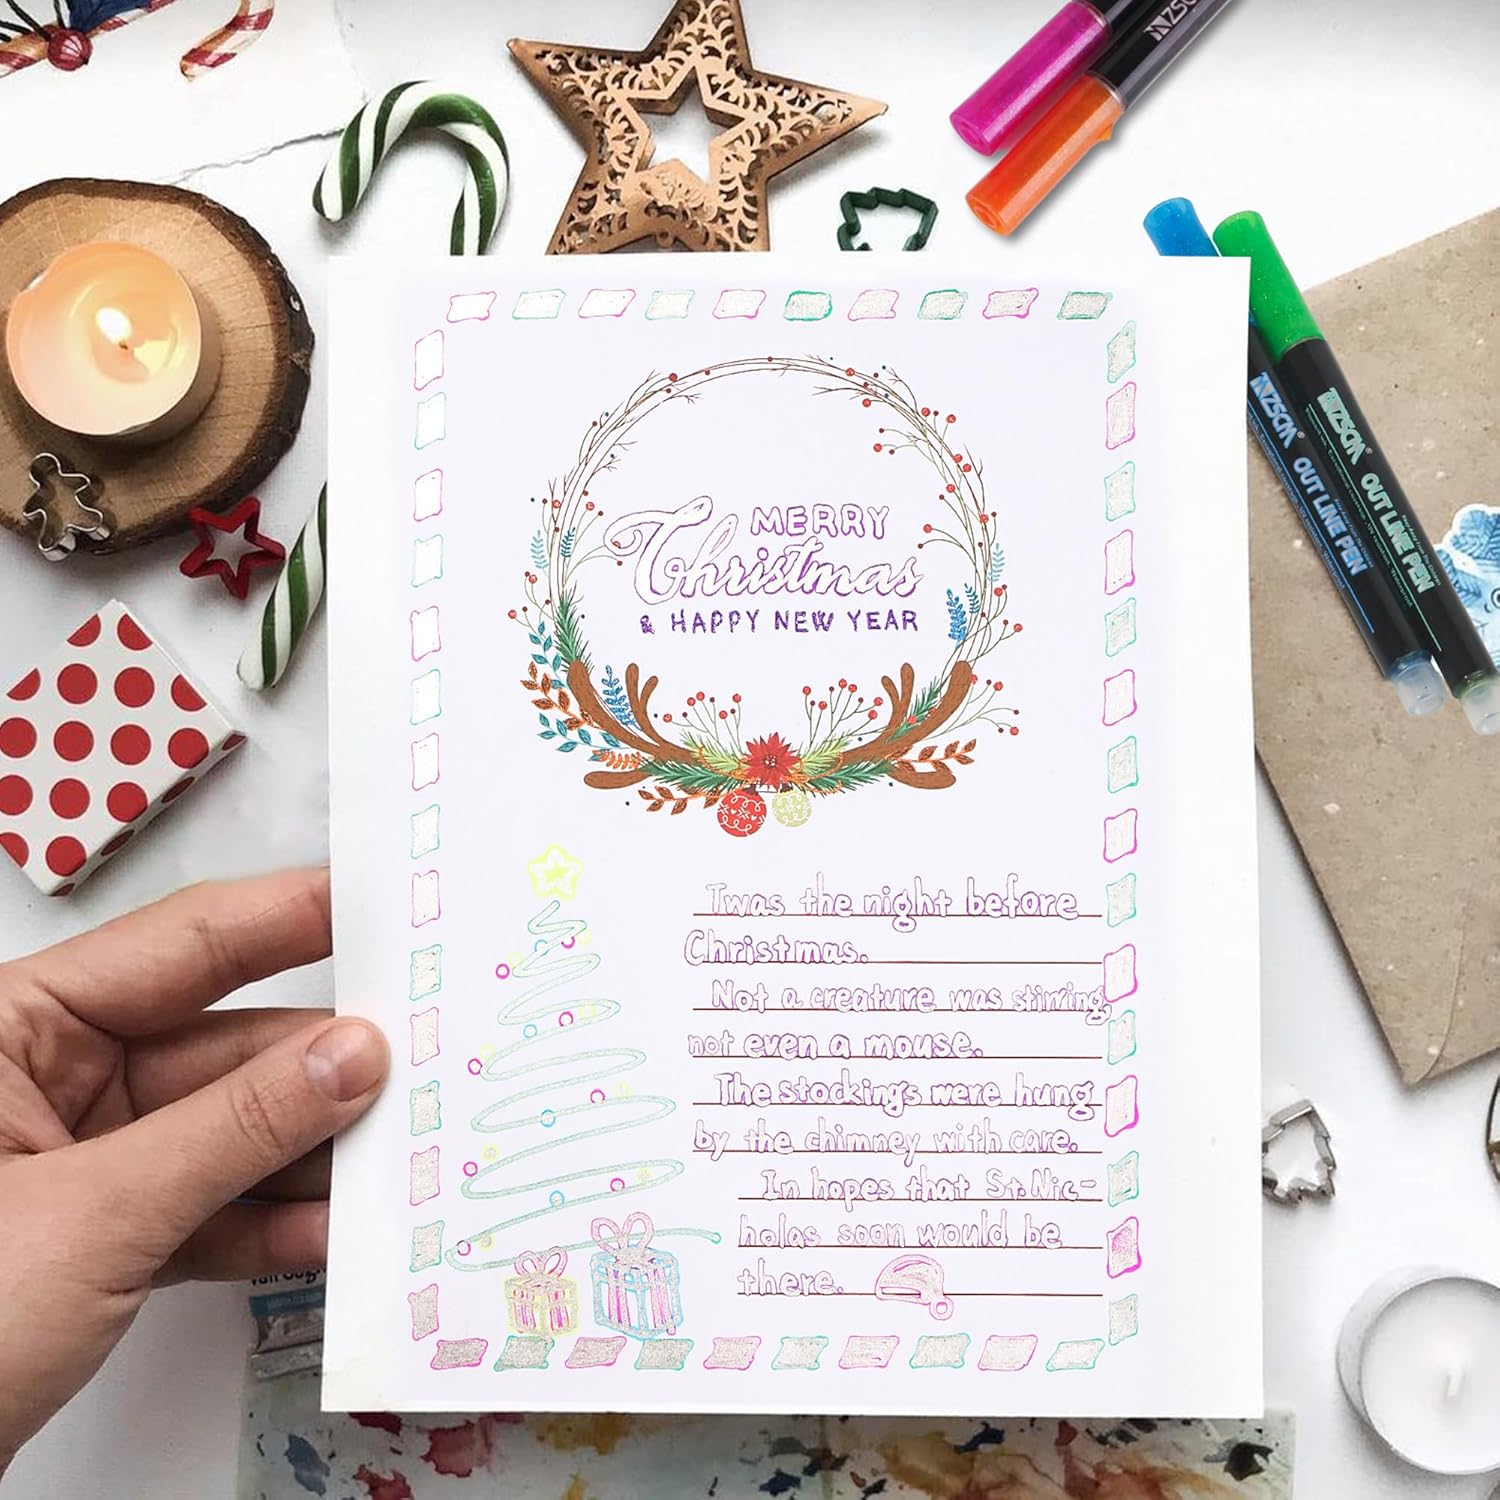 MZSCM
MERRY
Christmas
& HAPPY NEW YEAR
MZSCM® OUT LINE PEN
MZSCM® OUT LINE PEN
Twas the night before
Christmas.
Not a creature was stirring
not even a mouse.
The stockings were hung
by the chimney with care.
In hopes that St. Nic-
holas soon would be
there.